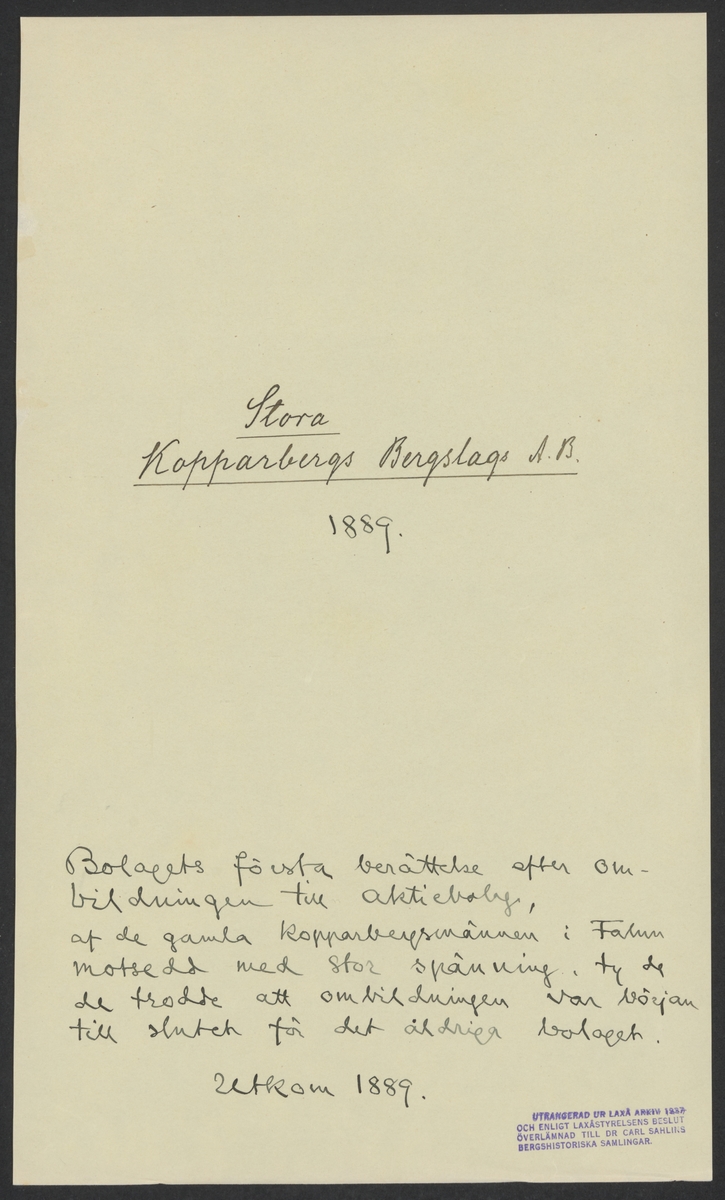 Stora
Kopparbergs Bergslags A.B.
1889.
Bolagets första berättelse efter om-
bildningen till aktiebolag,
af de gamla kopparbergsmännen i Falun
motsedd med stor spänning, ty de
de trodde att ombildningen var början
till slutet för det åldriga bolaget.
Utkom 1889.
UTRANGERAD UR LAXÅ ARKIV
OCH ENLIGT LAXÅSTYRELSENS BESLUT
ÖVERLÄMNAD TILL DR CARL SAHLINS
BERGSHISTORISKA SAMLINGAR.